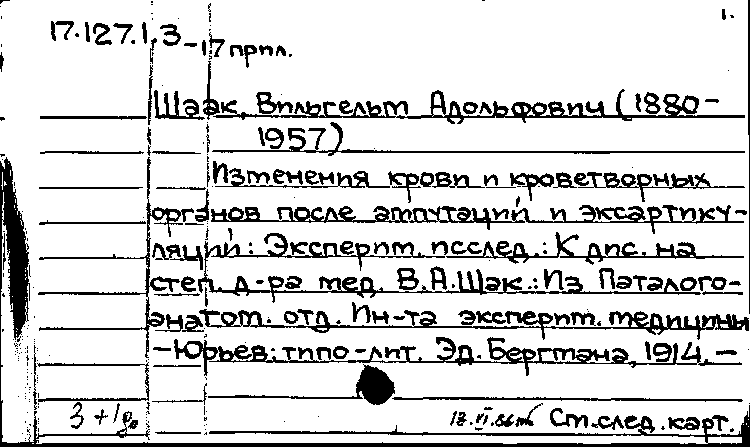 1.
17.127.1.3-17 прил.
Шаак, Вильгельм Адольфович (1880-
1957)
Изменения крови и кроветворных
органов после ампутаций и эксартику-
ляций: Эксперим. исслед.: К дис. на
степ. д-ра мед. В.А.Шак.: Из Паталого-
анатом. отд. Ин-та эксперим. медицины
-Юрьев: типо-лит. Эд. Бергмана, 1914. -
3+1д.
Ст.след.карт.